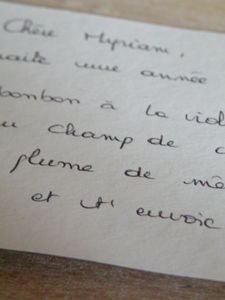 Chère Myriam,
une année
bonbon à la
champ de
plume de
et t'envoie